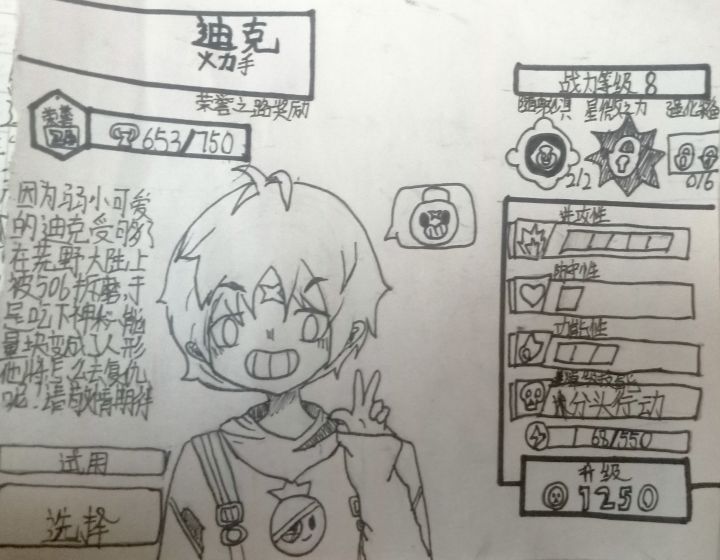 迪克
火力手
荣誉之路奖励
荣誉
653/750
因为弱小可爱
的迪克受够了
在荒野大陆上
被506折磨,于
是吃下神秘能
量块变成了人形
他将怎么去复仇
呢!请敬情期待
试用
选择
战力等级 8
随身妙具 星徽之力 强化装备
2/2
0/6
进攻性
防守性
功能性
分头行动
68/550
升级
1250